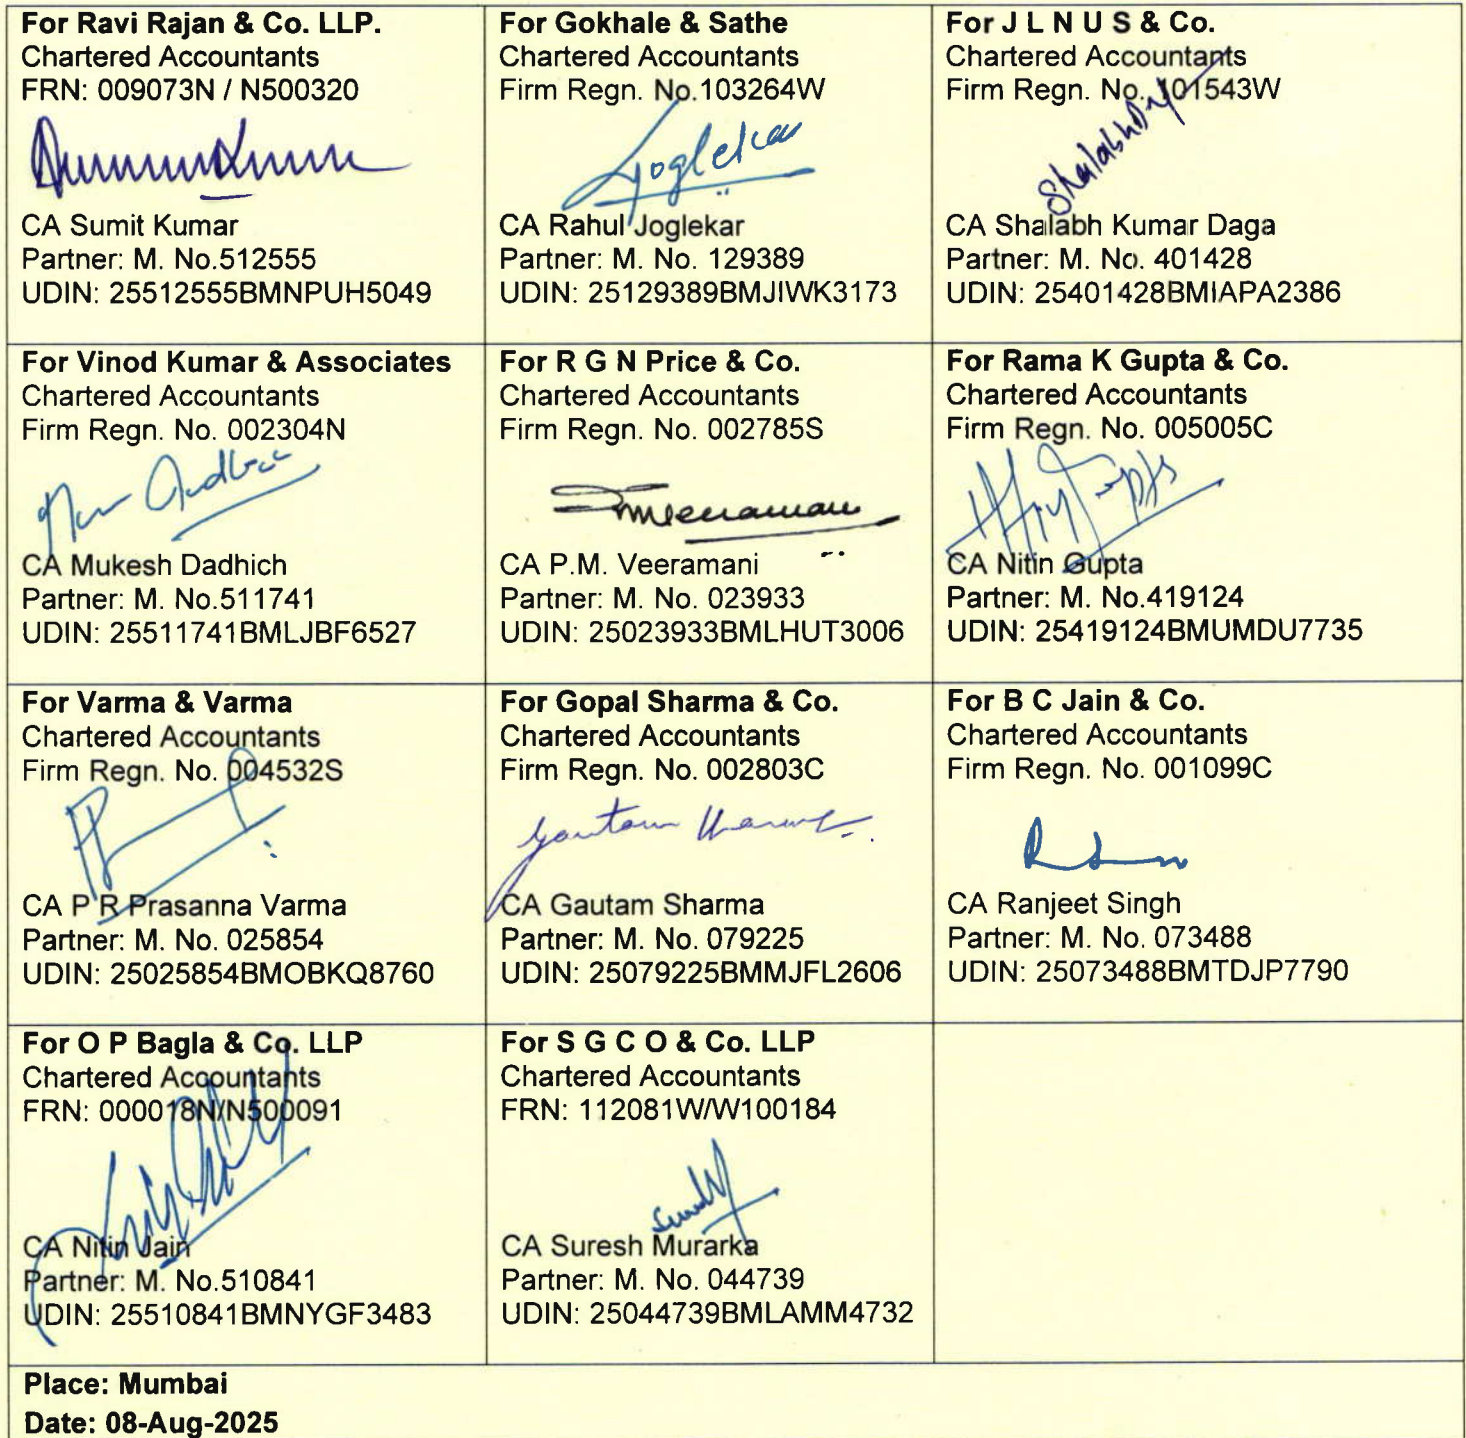 For Ravi Rajan & Co. LLP.
Chartered Accountants
FRN: 009073N / N500320
CA Sumit Kumar
Partner: M. No.512555
UDIN: 25512555BMNPUH5049
For Gokhale & Sathe
Chartered Accountants
Firm Regn. No.103264W
Joglekar
CA Rahul Joglekar
Partner: M. No. 129389
UDIN: 25129389BMJIWK3173
For J L N U S & Co.
Chartered Accountants
Firm Regn. No. 101543W
CA Shalabh Kumar Daga
Partner: M. No. 401428
UDIN: 25401428BMIAPA2386
For Vinod Kumar & Associates
Chartered Accountants
Firm Regn. No. 002304N
CA Mukesh Dadhich
Partner: M. No.511741
UDIN: 25511741BMLJBF6527
For R G N Price & Co.
Chartered Accountants
Firm Regn. No. 002785S
CA P.M. Veeramani
Partner: M. No. 023933
UDIN: 25023933BMLHUT3006
For Rama K Gupta & Co.
Chartered Accountants
Firm Regn. No. 005005C
CA Nitin Gupta
Partner: M. No.419124
UDIN: 25419124BMUMDU7735
For Varma & Varma
Chartered Accountants
Firm Regn. No. 004532S
CA P R Prasanna Varma
Partner: M. No. 025854
UDIN: 25025854BMOBKQ8760
For Gopal Sharma & Co.
Chartered Accountants
Firm Regn. No. 002803C
Gautam Sharma
CA Gautam Sharma
Partner: M. No. 079225
UDIN: 25079225BMMJFL2606
For B C Jain & Co.
Chartered Accountants
Firm Regn. No. 001099C
CA Ranjeet Singh
Partner: M. No. 073488
UDIN: 25073488BMTDJP7790
For O P Bagla & Co. LLP
Chartered Accountants
FRN: 000018N/N500091
CA Nitin Jain
Partner: M. No.510841
UDIN: 25510841BMNYGF3483
For S G C O & Co. LLP
Chartered Accountants
FRN: 112081W/W100184
CA Suresh Murarka
Partner: M. No. 044739
UDIN: 25044739BMLAMM4732
Place: Mumbai
Date: 08-Aug-2025